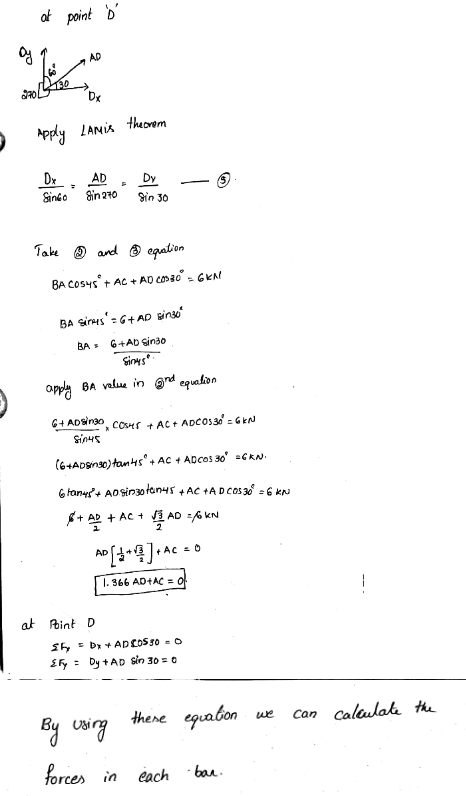 at point 'D'
Dy
AD
60°
30
270
Dx
Apply LAMis theorem
Dx/Sin60 = AD/Sin270 = Dy/Sin30 — ⑤.
Take ② and ③ equation
BA COS45° + AC + AD COS30° = 6KN
BA Sin45° = 6 + AD Sin30°
BA = 6+AD Sin30/Sin45°.
apply BA value in ②nd equation
6+ADSin30/Sin45 x COS45 + AC + ADCOS30° = 6KN
(6+ADSin30)tan45° + AC + ADCOS30° = 6KN.
6tan45° + ADSin30tan45 + AC + ADCOS30° = 6KN
6 + AD/2 + AC + √3/2 AD = 6KN
AD[1/2+√3/2] + AC = 0
1.366 AD+AC = 0
at Point D
ΣFx = Dx + ADCOS30 = 0
ΣFy = Dy + AD Sin 30 = 0
By using these equation we can calculate the
forces in each bar.